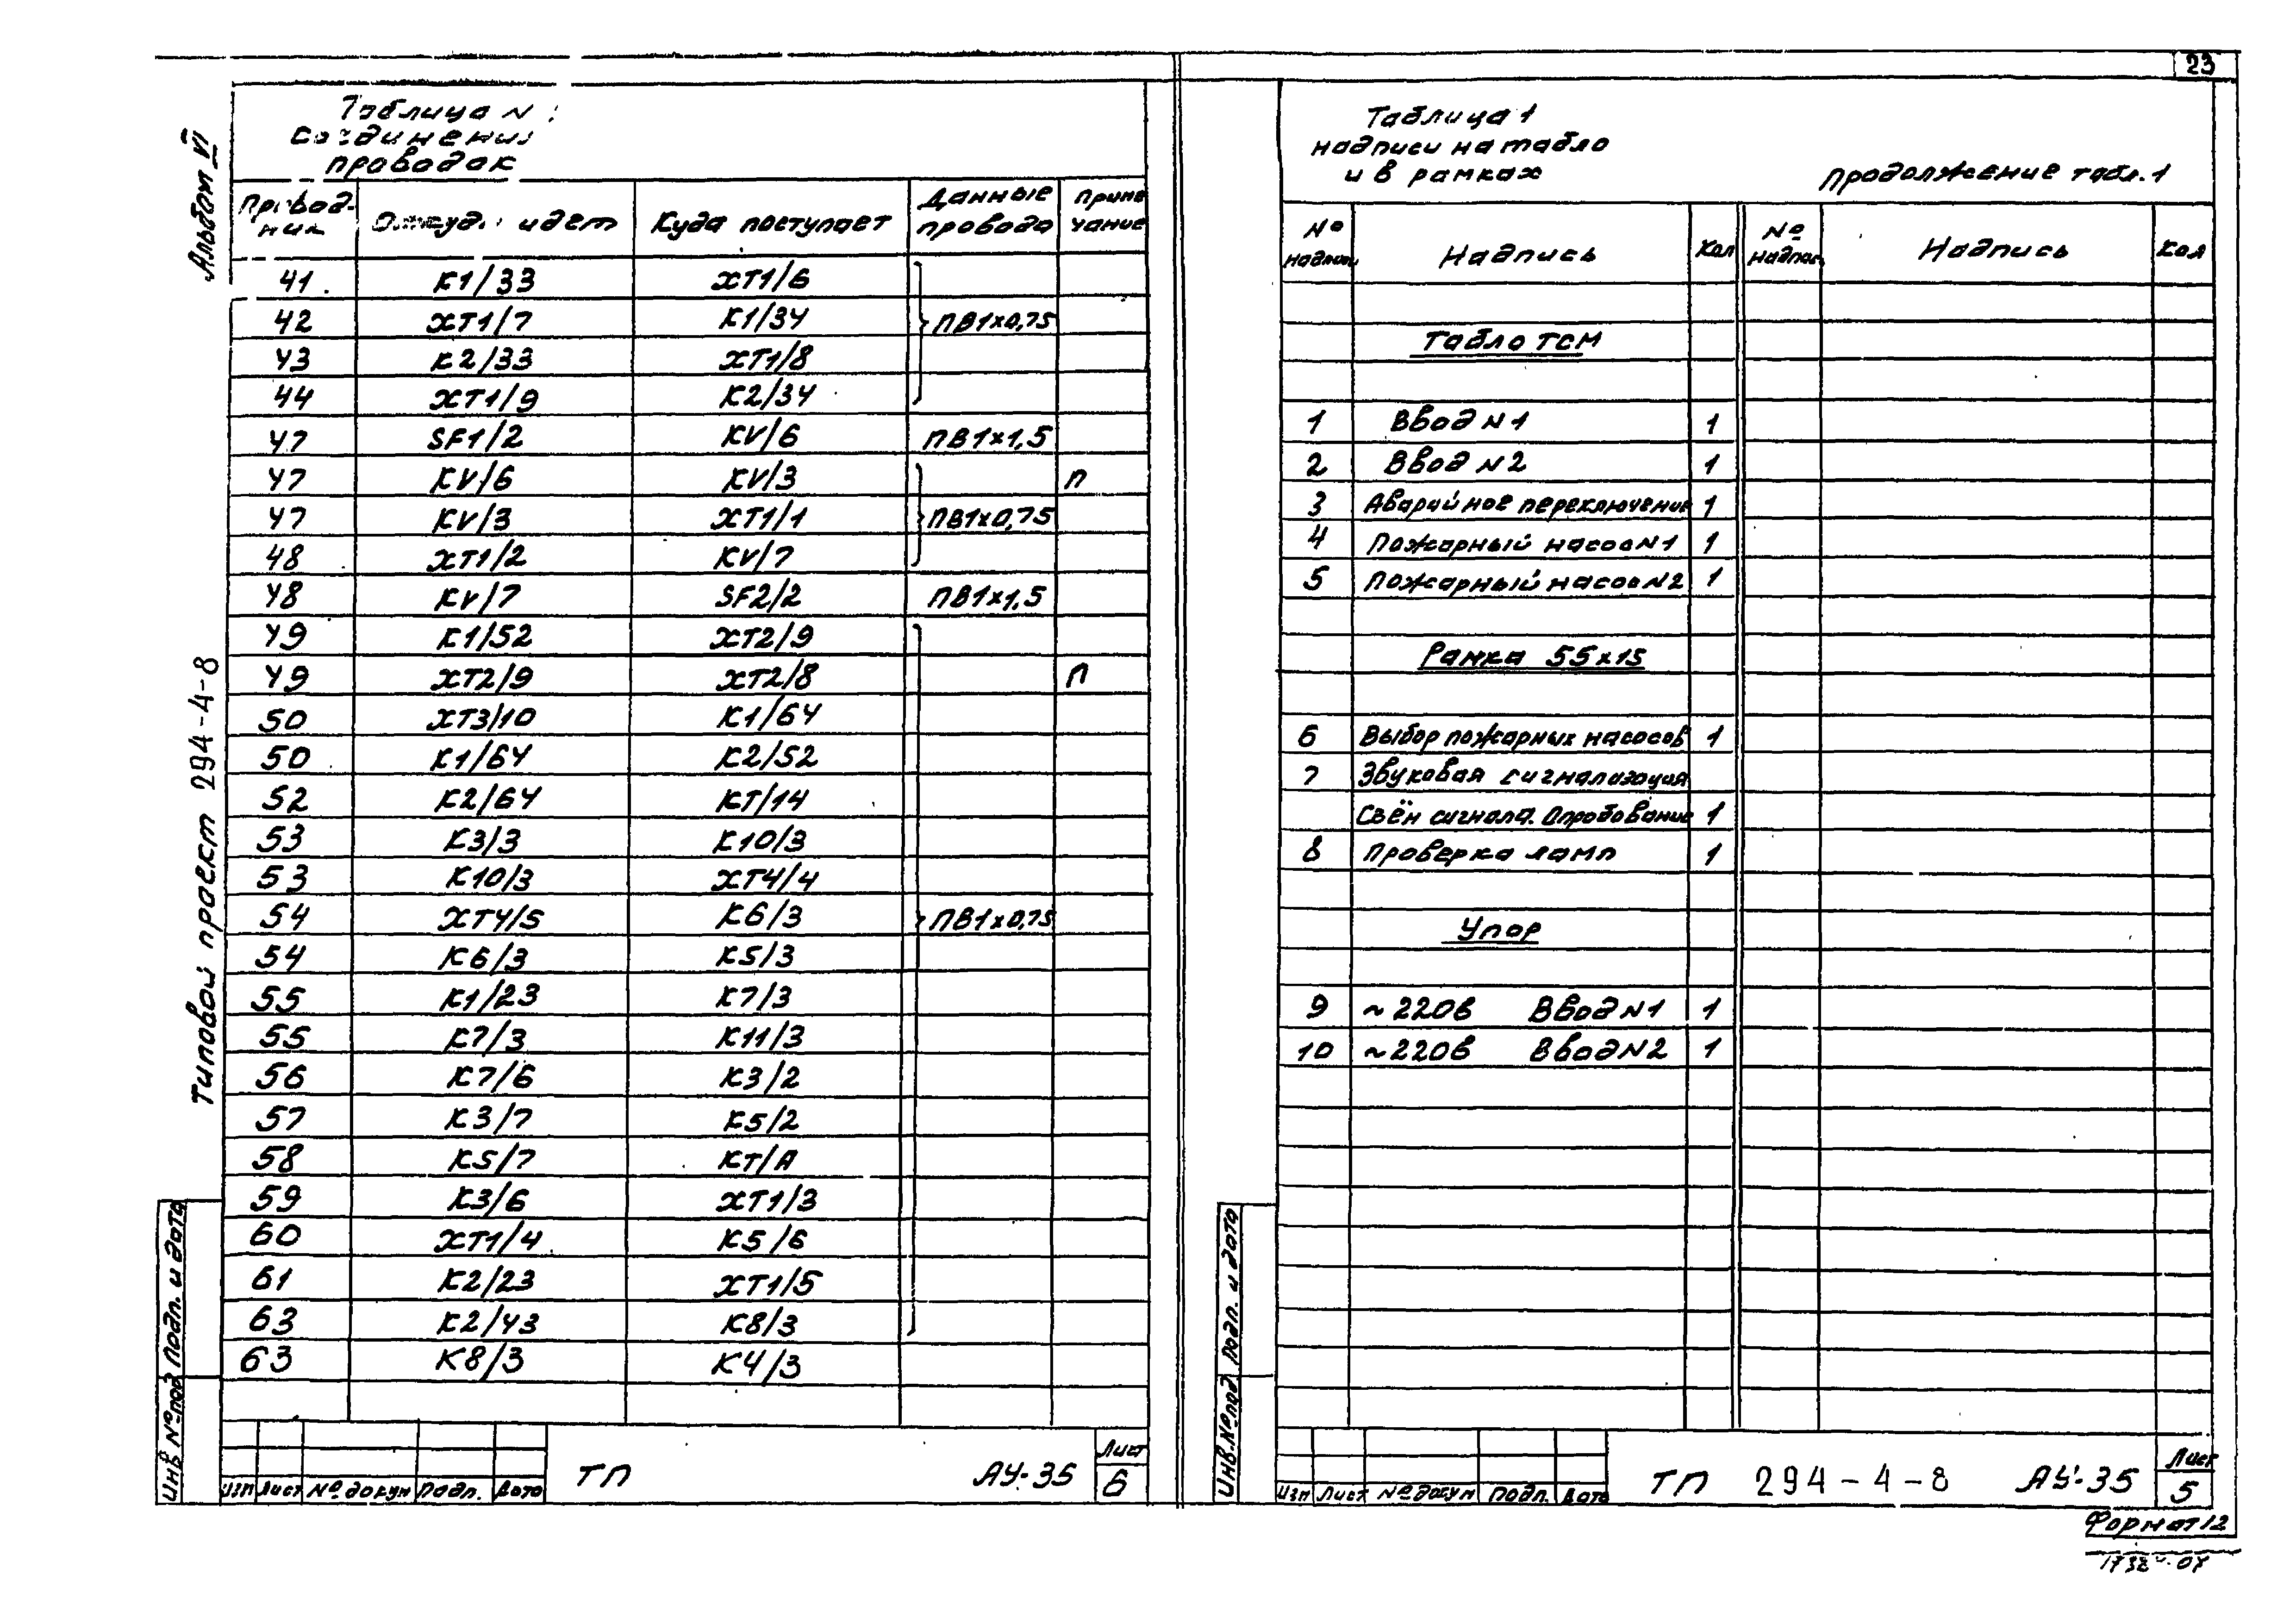 23
Альбом VI
Типовой проект 294-4-8
Таблица N
соединения
проводок
Проводник Откуда идет Куда поступает Данные провода Примечание
41 К1/33 ХТ1/6
42 ХТ1/7 К1/34 ПВ1х0,75
43 К2/33 ХТ1/8
44 ХТ1/9 К2/34
47 SF1/2 KV/6 ПВ1х1,5
47 KV/6 KV/3 П
47 KV/3 ХТ1/1 ПВ1х0,75
48 ХТ1/2 KV/7
48 KV/7 SF2/2 ПВ1х1,5
49 К1/52 ХТ2/9
49 ХТ2/9 ХТ2/8 П
50 ХТ3/10 К1/64
50 К1/64 К2/52
52 К2/64 КТ/14
53 К3/3 К10/3
53 К10/3 ХТ4/4
54 ХТ4/5 К6/3 ПВ1х0,75
54 К6/3 К5/3
55 К1/23 К7/3
55 К7/3 К11/3
56 К7/6 К3/2
57 К3/7 К5/2
58 К5/7 КТ/А
59 К3/6 ХТ1/3
60 ХТ1/4 К5/6
61 К2/23 ХТ1/5
63 К2/43 К8/3
63 К8/3 К4/3
Инв №под Подп. и дата
Изм Лист № докум Подп. Дата
ТП АУ-35 Лист 6
Таблица 1
надписи на табло
и в рамках
Продолжение табл. 1
№ надписи Надпись Кол № надпис. Надпись Кол
Табло ТСМ
1 Ввод N1 1
2 Ввод N2 1
3 Аварийное переключение 1
4 Пожарный насос N1 1
5 Пожарный насос N2 1
Рамка 55х15
6 Выбор пожарных насосов 1
7 Звуковая сигнализация
Съём сигнала. Опробование 1
8 Проверка ламп 1
Упор
9 ~220в Ввод N1 1
10 ~220в Ввод N2 1
Инв.№под Подп. и дата
Изм Лист № докум Подп. Дата
ТП 294-4-8 АУ-35 Лист 5
Формат 12